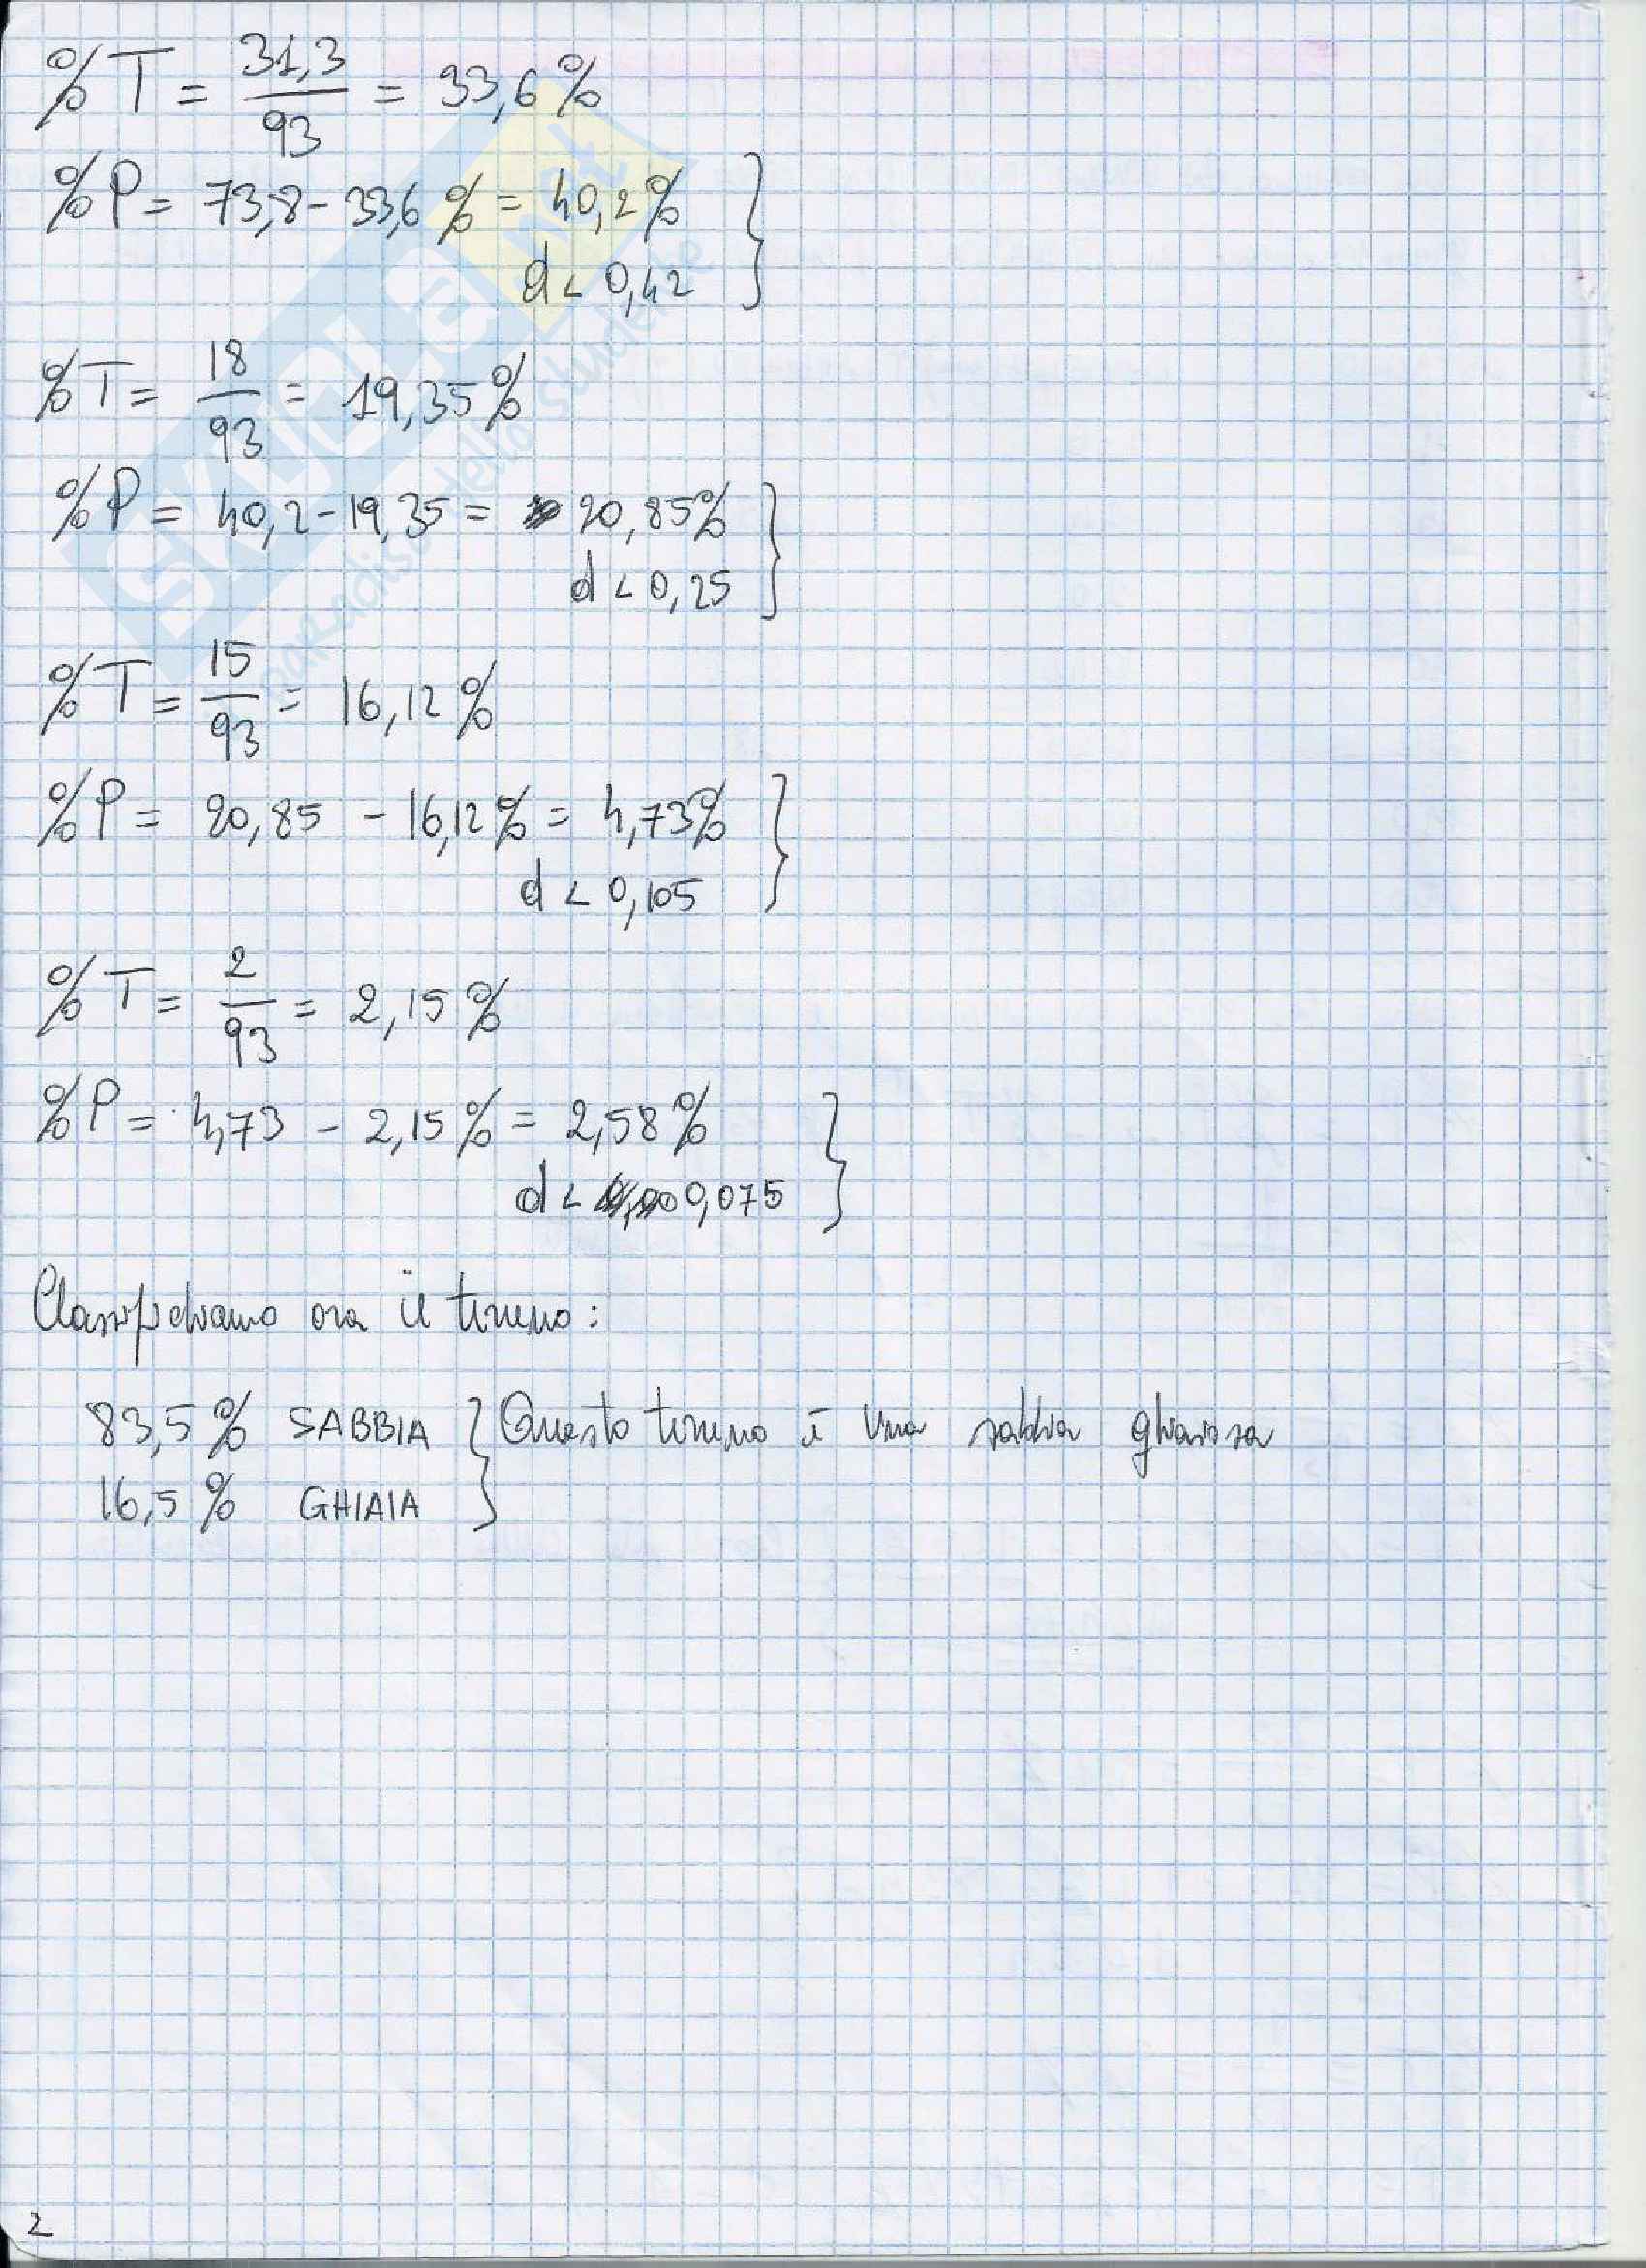 %T = 31,3/93 = 33,6%
%P = 73,8 - 33,6% = 40,2%
d < 0,42
%T = 18/93 = 19,35%
%P = 40,2 - 19,35 = 20,85%
d < 0,25
%T = 15/93 = 16,12%
%P = 20,85 - 16,12% = 4,73%
d < 0,105
%T = 2/93 = 2,15%
%P = 4,73 - 2,15% = 2,58%
d < 0,075
Classifichiamo ora il terreno:
83,5% SABBIA } Questo terreno è una sabbia ghiaiosa
16,5% GHIAIA
2
SKUOLA.net
paradiso dello studente